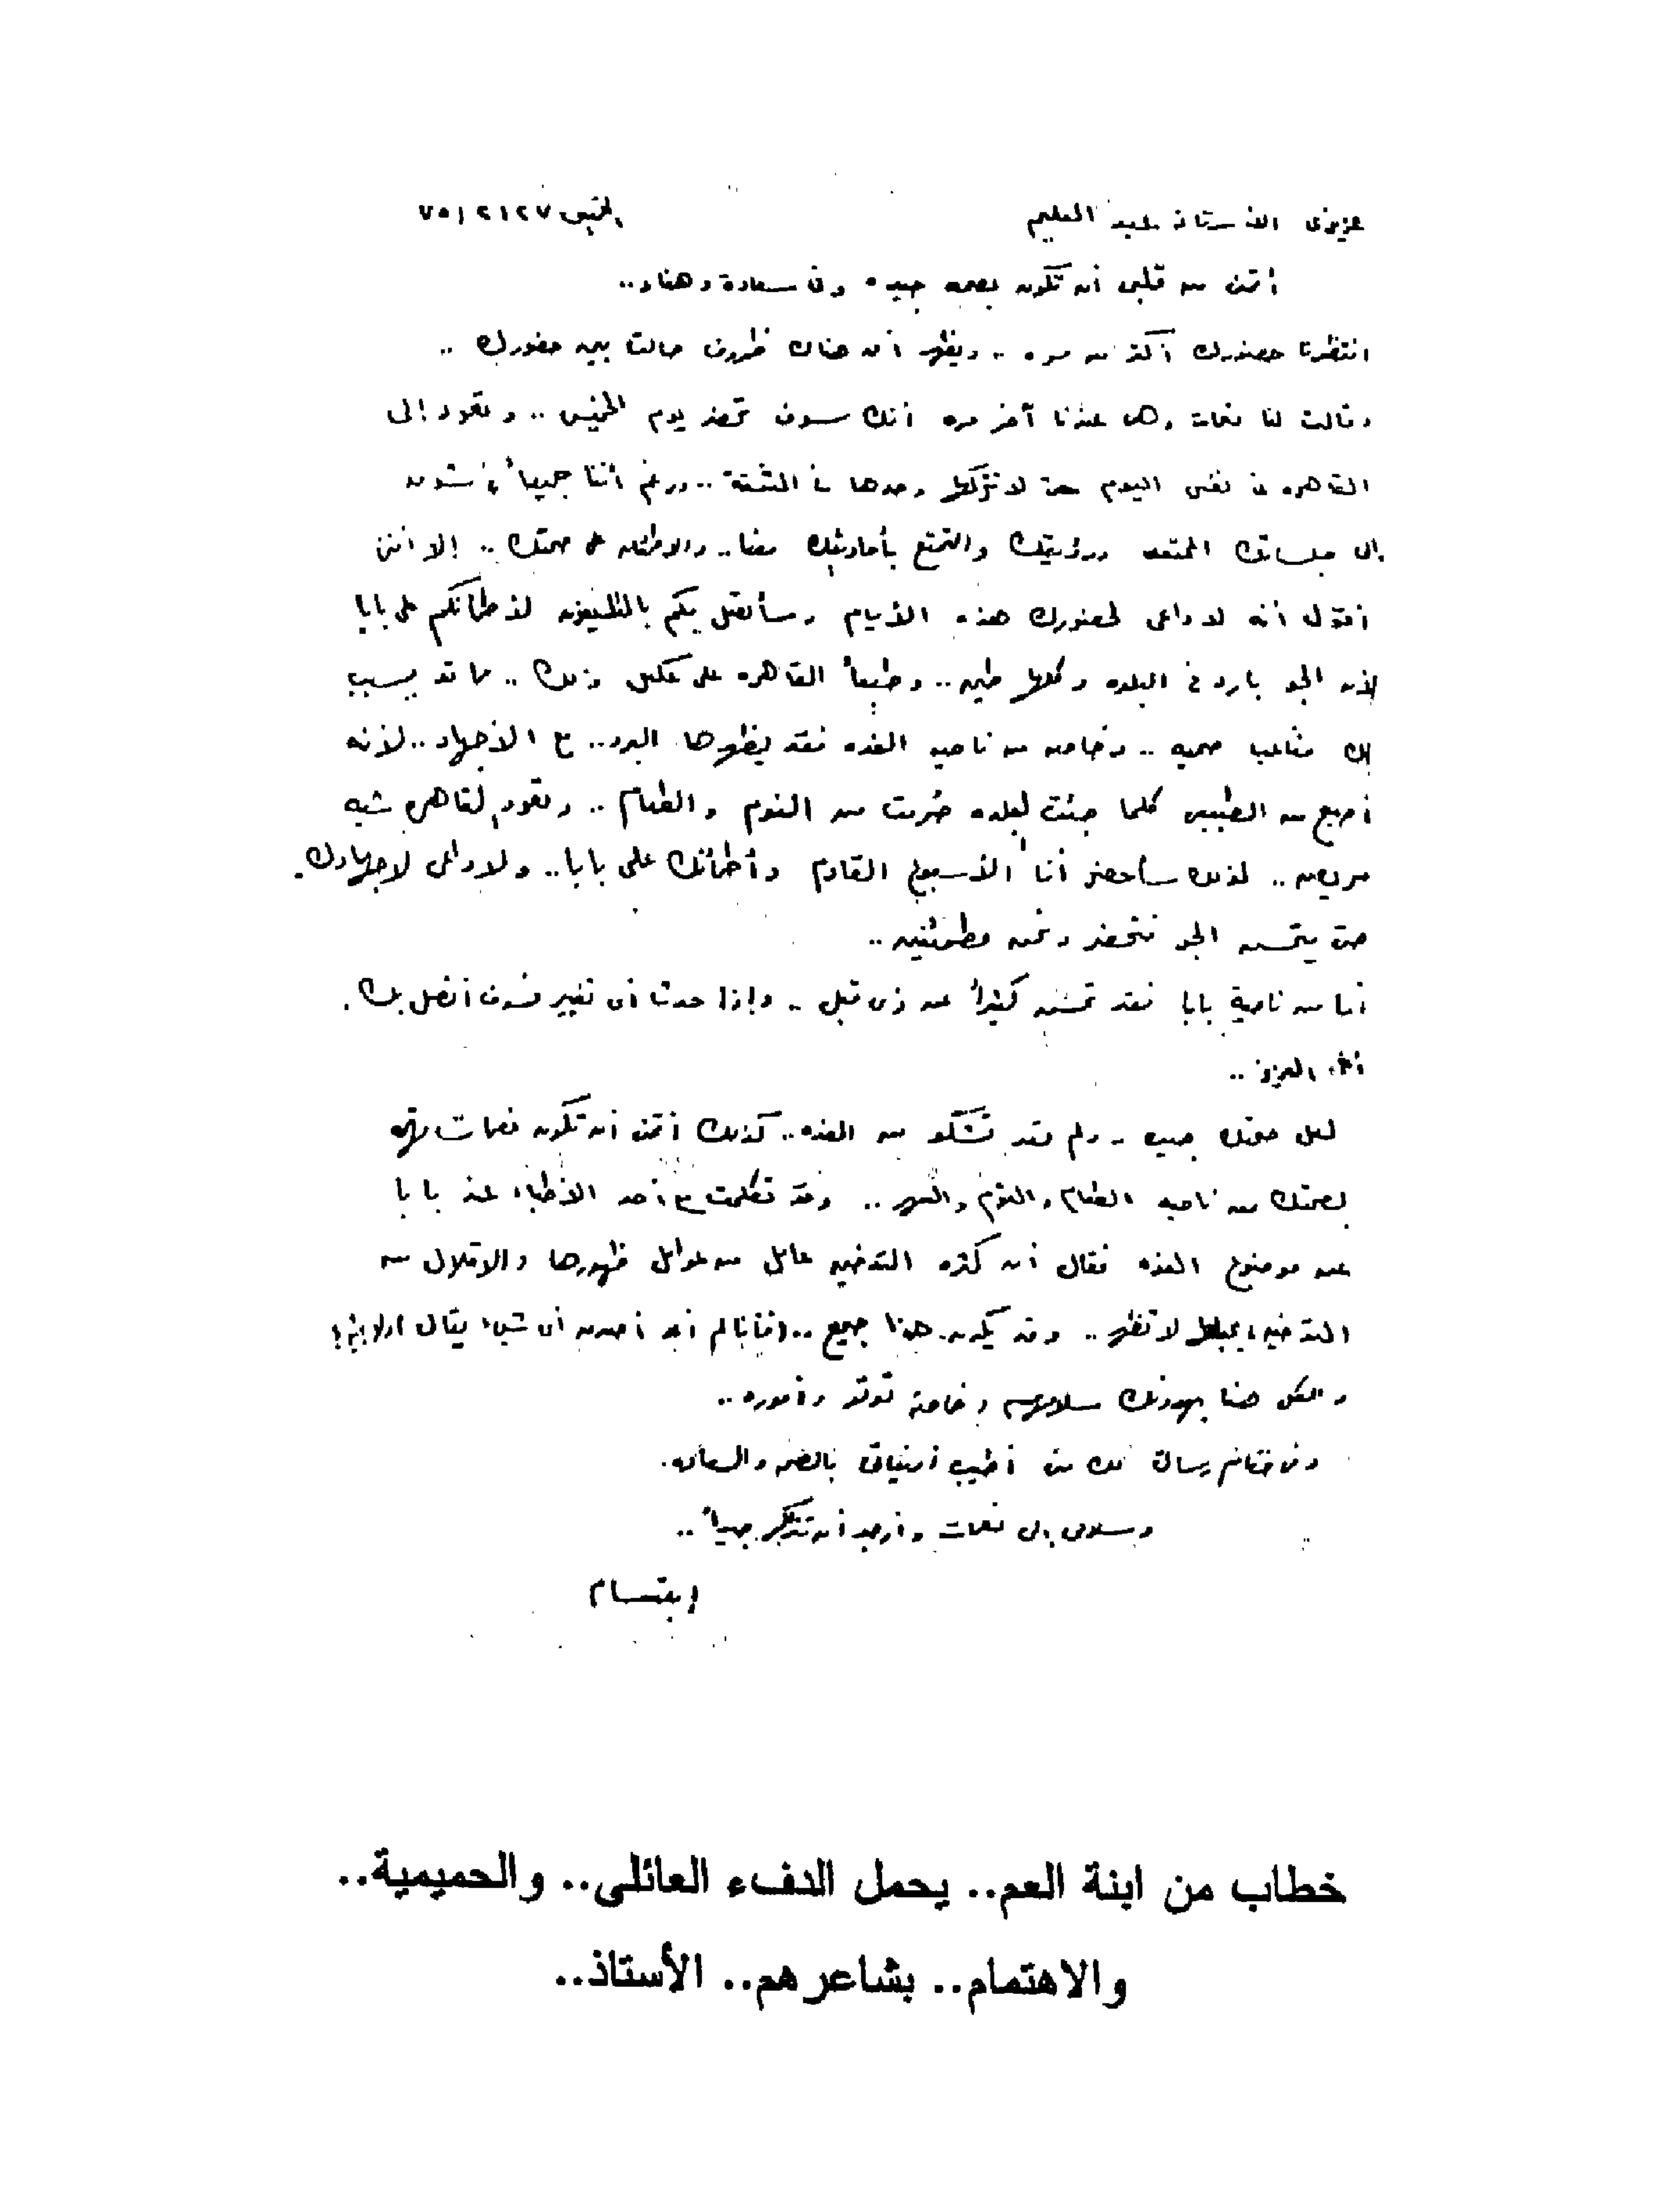 عزيزى الأستاذ عبد العليم
الخميس ٢٧ / ٢ / ٧٥
أتمنى من قلبى أن تكون بصحه جيده وفى سعادة وهناء ..
انتظرنا حضورك أكثر من مره .. ويظهر أن هناك ظروف حالت بين حضورك ..
وقالت لنا نعمات وهى عندنا آخر مره أنك سوف تحضر يوم الخميس .. وتعود إلى
القاهره فى نفس اليوم حتى لا تتركها وحدها فى الشقة .. ورغم أننا جميعاً فى شوق
إلى جلساتك الممتعه ورؤيتك والتمتع بأحاديثك معنا .. والاطمئنان على صحتك .. إلا أننى
أقول أنه لا داعى لحضورك هذه الأيام وسأتصل بكم بالتليفون لأطمأنكم على بابا
لأن الجو بارد فى البلده وكلها طين .. وطبعاً القاهره على عكس ذلك .. مما قد يسبب
لك متاعب صحيه .. وخاصه من ناحيه الغده فقد يظهرها البرد .. مع الأجهاد .. لأنه
أصبح من الطبيعى كلما جئت لبلده حُرمت من النوم والطعام .. وتعود لقاهره شبه
مريض .. لذلك سأحضر أنا الأسبوع القادم وأطمأنك على بابا .. ولا داعى لاجهادك .
حتى يتحسن الجو فتحضر ونحن مطمئنين ..
أما من ناحية بابا فقد تحسن كثيراً عن ذى قبل .. وإذا حدث أى تغيير فسوف أتصل بك .
أخى العزيز ..
لعل صحتك جيده .. ولم تعد تشكو من الغده .. كذلك أتمنى أن تكون نعمات تهتم
بصحتك من ناحيه الطعام والنوم والسهر .. وقد تكلمت مع أحد الأطباء عند بابا
عن موضوع الغده فقال أن كثره التدخين عامل من عوامل ظهورها والاقلال من
التدخين يجعلها لا تظهر .. وقد يكون هذا صحيح .. (فأنا لم أعد أصدق أى شىء يقال
والكل هنا يهدونك سلامهم وخاصة توتو وأموره ..
وفى ختام رسالتى لك منى أطيب أمنياتى بالصحه والسعاده .
وسلامى إلى نعمات وأرجو أن تتذكر جيداً ..
إبتسام
خطاب من ابنة العم.. يحمل الدفء العائلى.. والحميمية..
والاهتمام.. بشاعرهم.. الأستاذ..